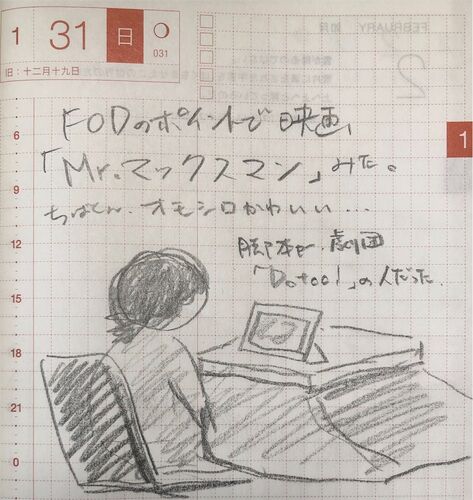 1 31 日
031
旧:十二月十九日
FEBRUARY 如月
2
1
FODのポイントで映画
「Mr.マックスマン」みた。
ちばくん、オモシロかわいい…
脚本が劇団
「Dotoo!」の人だった
6
9
12
15
18
21
0